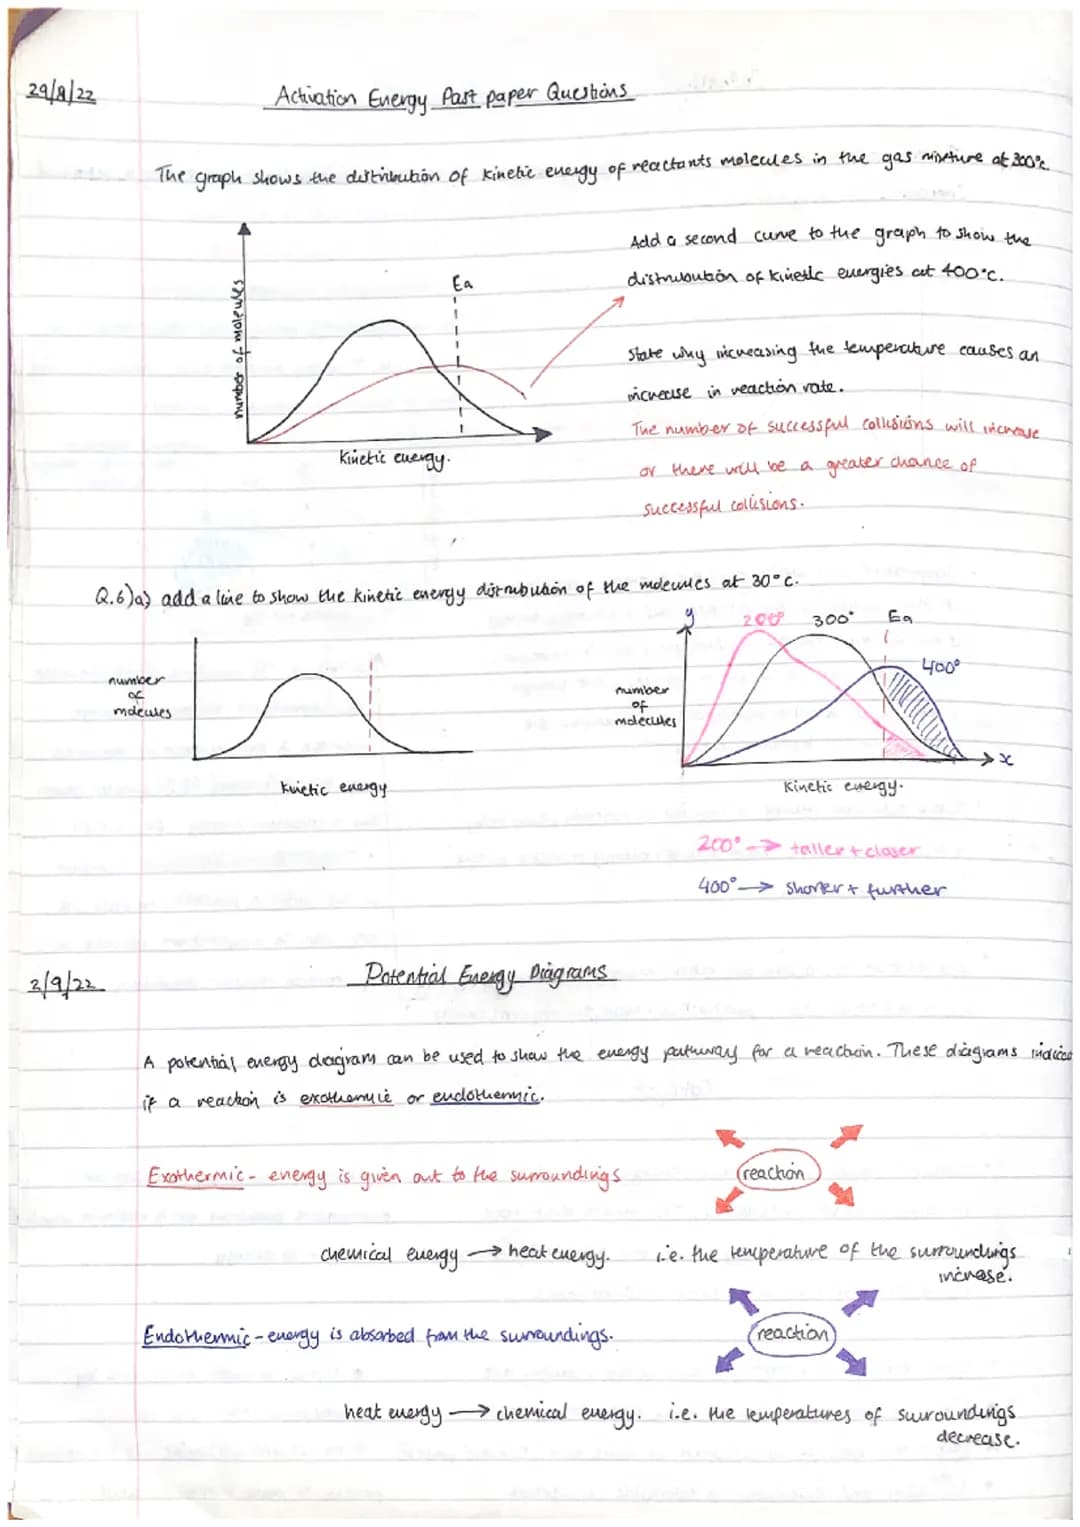 29/8/22
Activation Energy Past paper Questions
The graph shows the distribution of kinetic energy of reactants molecules in the gas mixture at 300°c
number of molecules
Ea
Kinetic energy.
Add a second curve to the graph to show the
distribution of kinetic energies at 400°c.
State why increasing the temperature causes an
increase in reaction rate.
The number of successful collisions will increase
or there will be a greater chance of
successful collisions.
Q.6)a) add a line to show the kinetic energy distribution of the molecules at 30°c.
number
of
molecules
kinetic energy
y
200°
300°
Ea
400°
number
of
molecules
x
Kinetic energy.
200° → taller + closer
400° → shorter + further
2/9/22
Potential Energy Diagrams
A potential energy diagram can be used to show the energy pathway for a reaction. These diagrams
if a reaction is exothermic or endothermic.
Exothermic - energy is given out to the surroundings
reaction
chemical energy → heat energy. i.e. the temperature of the surroundings
increase.
Endothermic - energy is absorbed from the surroundings.
reaction
heat energy → chemical energy. i.e. the temperatures of surroundings
decrease.